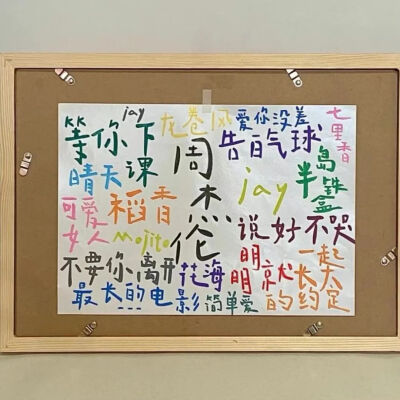 jay
龙卷风
爱你没差
七里香
等你下课
周杰伦
告白气球
晴天
jay
半岛铁盒
可爱女人
稻香
mojito
说好不哭
不要你离开
花海
明明就
一起长大的约定
最长的电影
简单爱